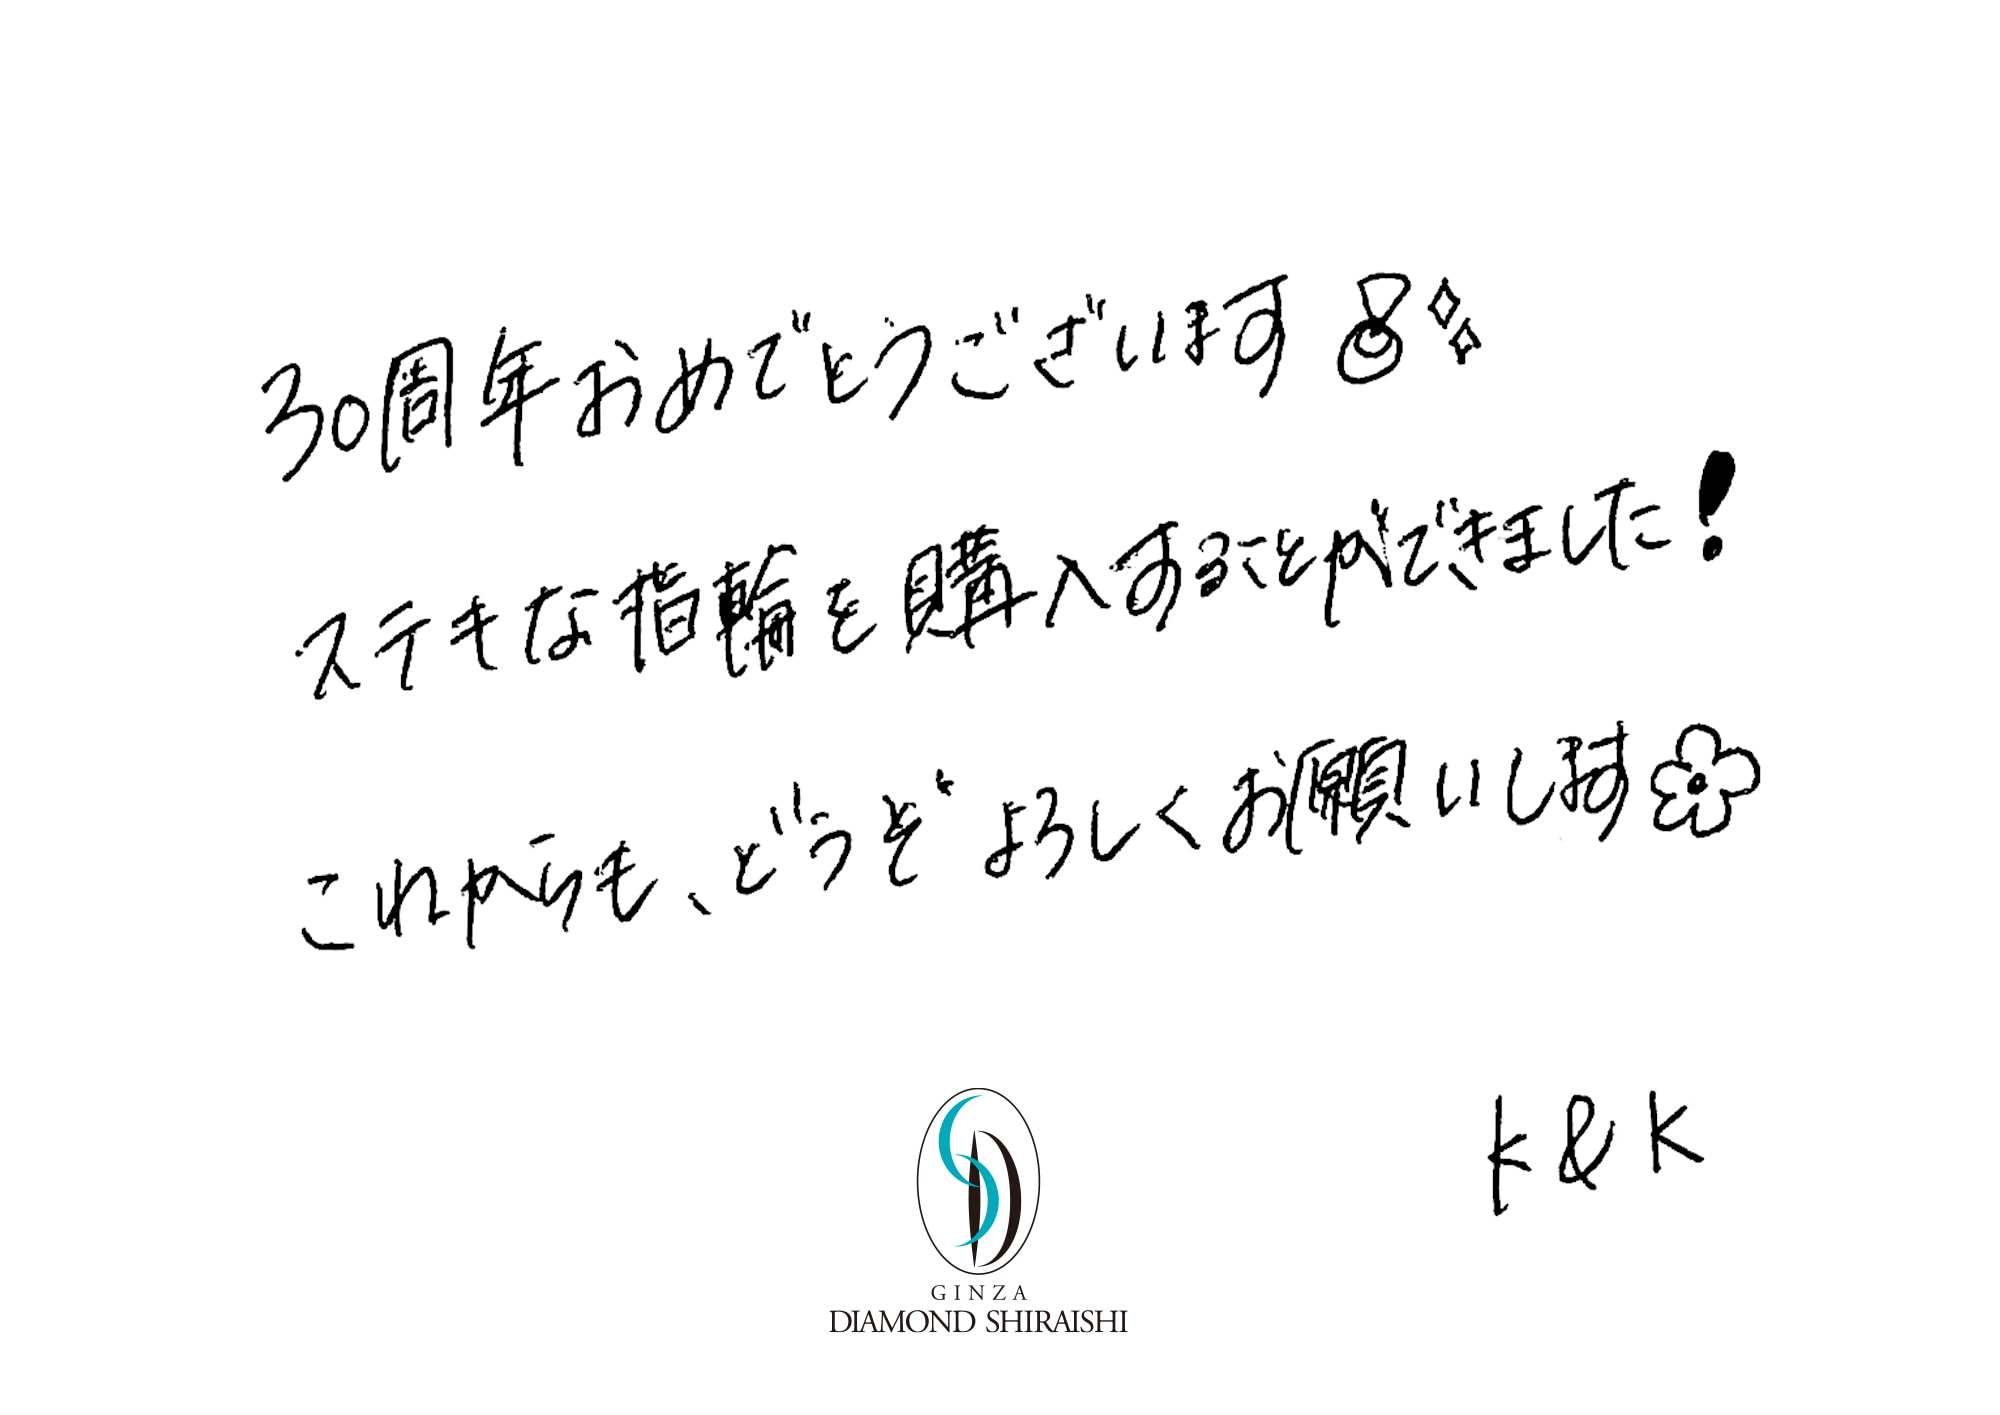 30周年おめでとうございます
ステキな指輪を購入することができました!
これからも、どうぞよろしくお願いします
K & K
GINZA
DIAMOND SHIRAISHI